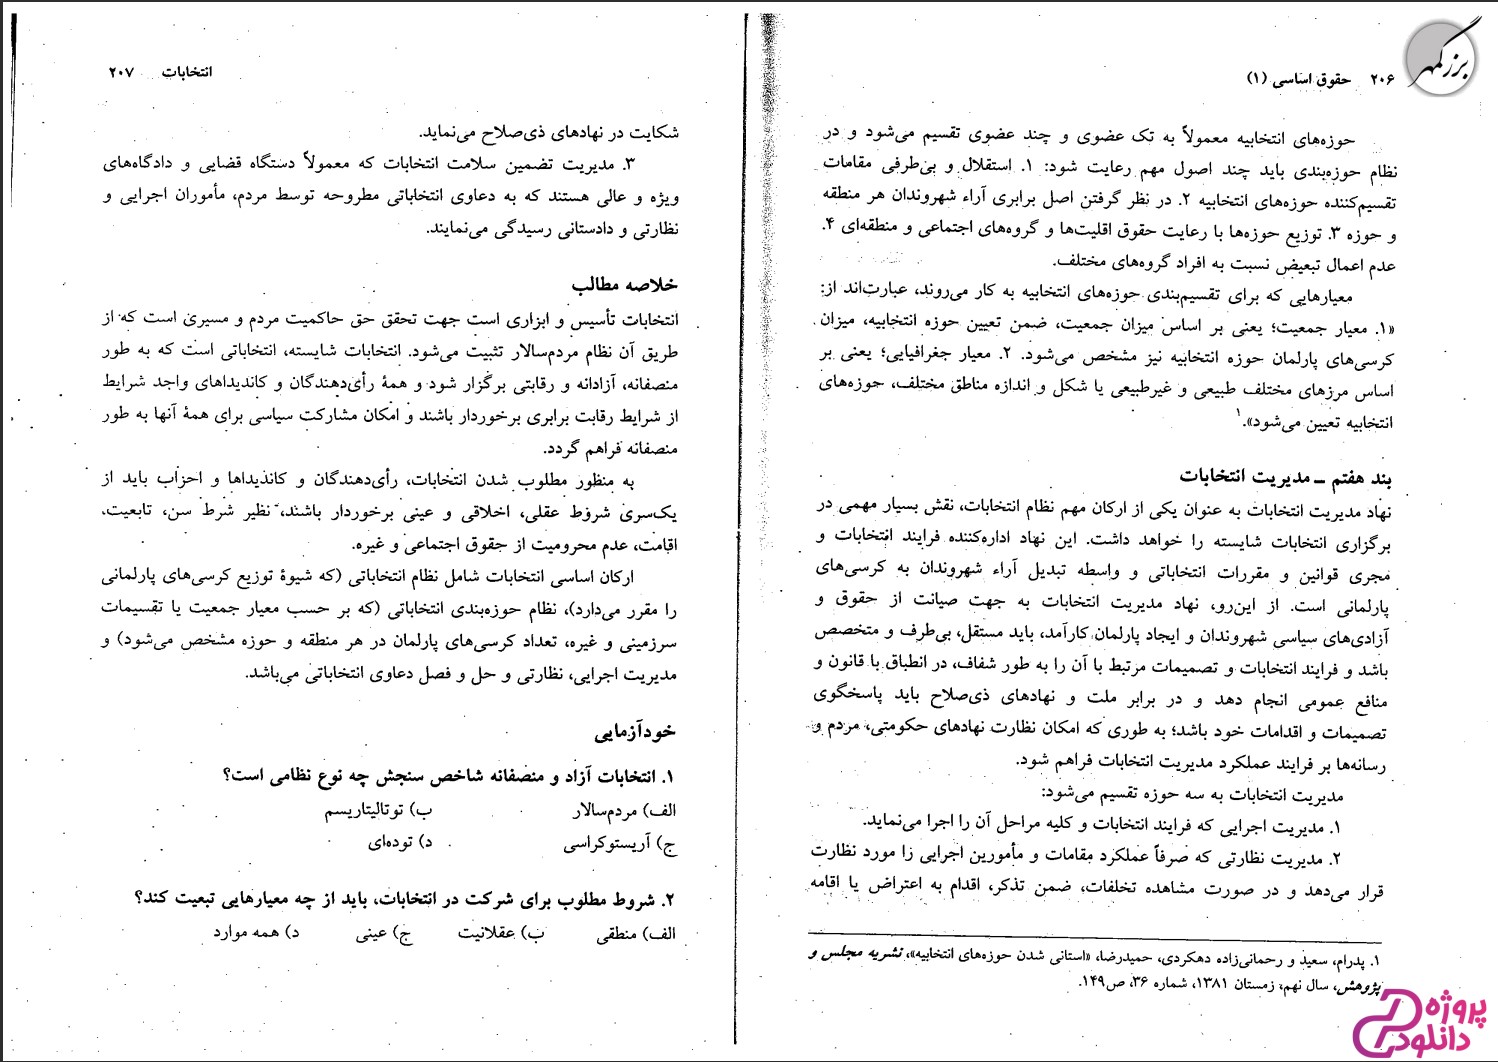 بزرگمهر
۲۰۶ حقوق اساسی (۱)
حوزه‌های انتخابیه معمولاً به تک عضوی و چند عضوی تقسیم می‌شود و در
نظام حوزه‌بندی باید چند اصول مهم رعایت شود: ۱. استقلال و بی‌طرفی مقامات
تقسیم‌کننده حوزه‌های انتخابیه ۲. در نظر گرفتن اصل برابری آراء شهروندان هر منطقه
و حوزه ۳. توزیع حوزه‌ها با رعایت حقوق اقلیت‌ها و گروه‌های اجتماعی و منطقه‌ای ۴.
عدم اعمال تبعیض نسبت به افراد گروه‌های مختلف.
معیارهایی که برای تقسیم‌بندی حوزه‌های انتخابیه به کار می‌روند، عبارت‌اند از:
«۱. معیار جمعیت؛ یعنی بر اساس میزان جمعیت، ضمن تعیین حوزه انتخابیه، میزان
کرسی‌های پارلمان حوزه انتخابیه نیز مشخص می‌شود. ۲. معیار جغرافیایی؛ یعنی بر
اساس مرزهای مختلف طبیعی و غیرطبیعی یا شکل و اندازه مناطق مختلف، حوزه‌های
انتخابیه تعیین می‌شود».۱
بند هفتم ـ مدیریت انتخابات
نهاد مدیریت انتخابات به عنوان یکی از ارکان مهم نظام انتخابات، نقش بسیار مهمی در
برگزاری انتخابات شایسته را خواهد داشت. این نهاد اداره‌کننده فرایند انتخابات و
مجری قوانین و مقررات انتخاباتی و واسطه تبدیل آراء شهروندان به کرسی‌های
پارلمانی است. از این‌رو، نهاد مدیریت انتخابات به جهت صیانت از حقوق و
آزادی‌های سیاسی شهروندان و ایجاد پارلمان کارآمد، باید مستقل، بی‌طرف و متخصص
باشد و فرایند انتخابات و تصمیمات مرتبط با آن را به طور شفاف، در انطباق با قانون و
منافع عمومی انجام دهد و در برابر ملت و نهادهای ذی‌صلاح باید پاسخگوی
تصمیمات و اقدامات خود باشد؛ به طوری که امکان نظارت نهادهای حکومتی، مردم و
رسانه‌ها بر فرایند عملکرد مدیریت انتخابات فراهم شود.
مدیریت انتخابات به سه حوزه تقسیم می‌شود:
۱. مدیریت اجرایی که فرایند انتخابات و کلیه مراحل آن را اجرا می‌نماید.
۲. مدیریت نظارتی که صرفاً عملکرد مقامات و مأمورین اجرایی را مورد نظارت
قرار می‌دهد و در صورت مشاهده تخلفات، ضمن تذکر، اقدام به اعتراض یا اقامه
۱. پدرام، سعید و رحمانی‌زاده دهکردی، حمیدرضا، «استانی شدن حوزه‌های انتخابیه»، نشریه مجلس و
پژوهش، سال نهم، زمستان ۱۳۸۱، شماره ۳۶، ص۱۴۹.
انتخابات ۲۰۷
شکایت در نهادهای ذی‌صلاح می‌نماید.
۳. مدیریت تضمین سلامت انتخابات که معمولاً دستگاه قضایی و دادگاه‌های
ویژه و عالی هستند که به دعاوی انتخاباتی مطروحه توسط مردم، مأموران اجرایی و
نظارتی و دادستانی رسیدگی می‌نمایند.
خلاصه مطالب
انتخابات تأسیس و ابزاری است جهت تحقق حق حاکمیت مردم و مسیری است که از
طریق آن نظام مردم‌سالار تثبیت می‌شود. انتخابات شایسته، انتخاباتی است که به طور
منصفانه، آزادانه و رقابتی برگزار شود و همۀ رأی‌دهندگان و کاندیداهای واجد شرایط
از شرایط رقابت برابری برخوردار باشند و امکان مشارکت سیاسی برای همۀ آنها به طور
منصفانه فراهم گردد.
به منظور مطلوب شدن انتخابات، رأی‌دهندگان و کاندیداها و احزاب باید از
یک‌سری شروط عقلی، اخلاقی و عینی برخوردار باشند، نظیر شرط سن، تابعیت،
اقامت، عدم محرومیت از حقوق اجتماعی و غیره.
ارکان اساسی انتخابات شامل نظام انتخاباتی (که شیوۀ توزیع کرسی‌های پارلمانی
را مقرر می‌دارد)، نظام حوزه‌بندی انتخاباتی (که بر حسب معیار جمعیت یا تقسیمات
سرزمینی و غیره، تعداد کرسی‌های پارلمان در هر منطقه و حوزه مشخص می‌شود) و
مدیریت اجرایی، نظارتی و حل و فصل دعاوی انتخاباتی می‌باشد.
خودآزمایی
۱. انتخابات آزاد و منصفانه شاخص سنجش چه نوع نظامی است؟
الف) مردم‌سالار ب) توتالیتاریسم
ج) آریستوکراسی د) توده‌ای
۲. شروط مطلوب برای شرکت در انتخابات، باید از چه معیارهایی تبعیت کند؟
الف) منطقی ب) عقلانیت ج) عینی د) همه موارد
پروژه
دانلود